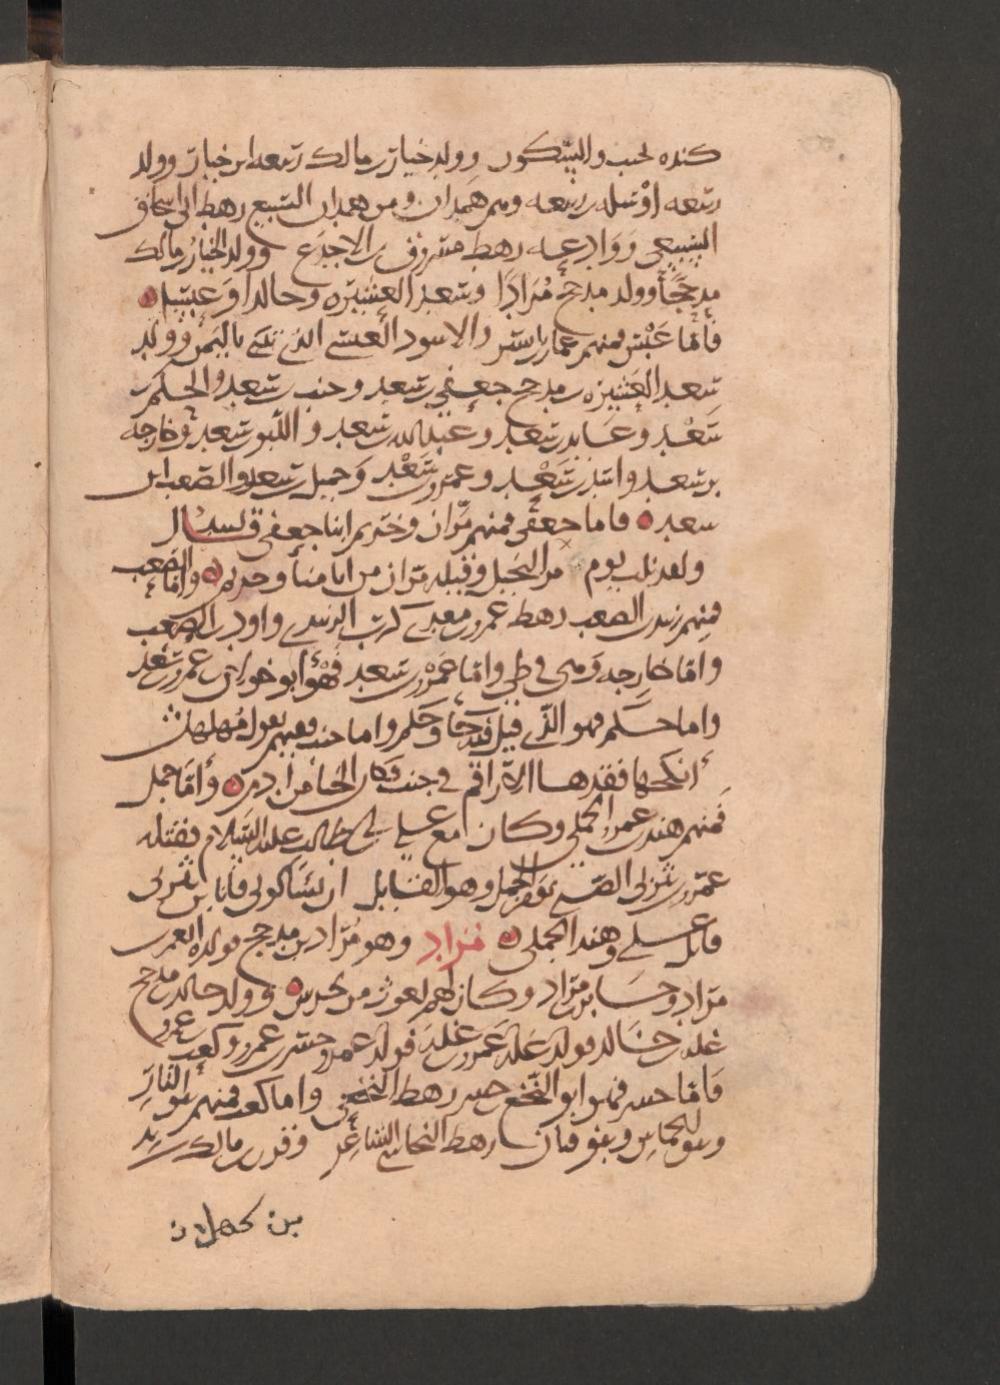 كنده تجيب والسكون وولد خيار بن مالك ربيعه ابن خيار وولد
ربيعه اوسله بن ربيعه وهم همدان ومن همدان السبيع رهط ابي اسحاق
السبيعي ووادعه رهط مسروق بن الاجدع وولد الخيار مالك
مذحجا وولد مذحج مرادا وسعد العشيره وخالدا وعنسا
فاما عنس فمنهم عمار بن ياسر والاسود العنسي الذي تنبى باليمن وولد
سعد العشيره بن مذحج جعفي بن سعد وجنب بن سعد والحكم بن
سعد وعايد بن سعد وعبدالله بن سعد واللبو بن سعد وخارجه
بن سعد واسد بن سعد وعمرو بن سعد وجميل بن سعد والصعب ابن
سعد فاما جعفي فمنهم مران وحريم ابنا جعفي قال لبيد
ولقد بلت يوم النخيل وقبله مران من ايامنا وحريم واما الصعب
فمنهم زبيد بن الصعب رهط عمرو بن معدي كرب الزبيدي واود بن الصعب
واما خارجه فهي في طي واما عمرو بن سعد فهو ابو خولان بن عمرو بن سعد
واما حكم فهو الذي قيل فيه حا وحكم واما جنب ففيهم يقول مهلهل
أنكحها فقدها الاراقم في جنب وكان الحبا من ادم واما جمل
فمنهم هند بن عمرو الجملي وكان مع علي بن ابي طالب عليه السلام فقتله
عمرو بن يثربي الضبي يوم الجمل وهو القايل ان تنكروني فانا بن يثربي
قاتل علي وهند الجملي مراد وهو مراد بن مذحج فولده العمرو بن
مراد وحسا بن مراد وكان لهم يغوث من جرش وولد خالد بن مذحج
عله بن خالد فولد عله عمرو بن عله فولد عمرو جسر بن عمرو وكعب بن عمرو
فاما جسر فهو ابو النخع بن جسر رهط النخعي واما كعب فمنهم بنو النار
وبنو الحماس وبنو قنان رهط النجاشي الشاعر وولد مالك بن زيد
بن كهلان